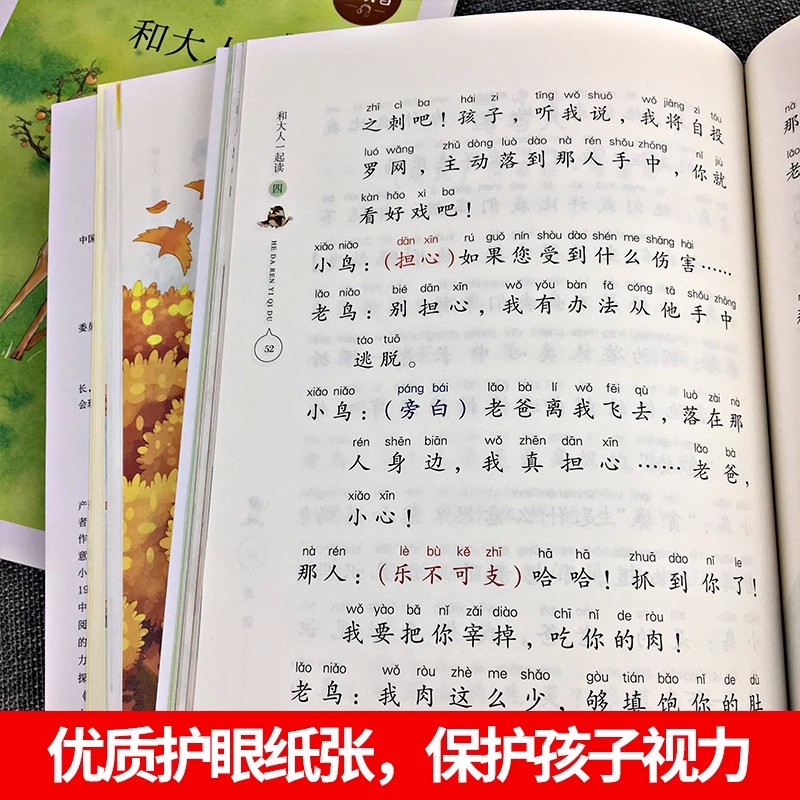 和大人
和大人一起读
四
HE DA REN YI QI DU
52
zhī cì ba hái zi tīng wǒ shuō wǒ jiāng zì tóu
之刺吧！孩子，听我说，我将自投
luó wǎng zhǔ dòng luò dào nà rén shǒu zhōng nǐ jiù
罗网，主动落到那人手中，你就
kàn hǎo xì ba
看好戏吧！
xiǎo niǎo dān xīn rú guǒ nín shòu dào shén me shāng hài
小鸟：（担心）如果您受到什么伤害……
lǎo niǎo bié dān xīn wǒ yǒu bàn fǎ cóng tā shǒu zhōng
老鸟：别担心，我有办法从他手中
táo tuō
逃脱。
xiǎo niǎo páng bái lǎo bà lí wǒ fēi qù luò zài nà
小鸟：（旁白）老爸离我飞去，落在那
rén shēn biān wǒ zhēn dān xīn lǎo bà
人身边，我真担心……老爸，
xiǎo xīn
小心！
nà rén lè bù kě zhī hā hā zhuā dào nǐ le
那人：（乐不可支）哈哈！抓到你了！
wǒ yào bǎ nǐ zǎi diào chī nǐ de ròu
我要把你宰掉，吃你的肉！
lǎo niǎo wǒ ròu zhè me shǎo gòu tián bǎo nǐ de dǔ
老鸟：我肉这么少，够填饱你的肚
nà
那
lǎo
老
中国
委员
长，
产
者
作
意
小
19
中
阅
的
力
探
优质护眼纸张，保护孩子视力